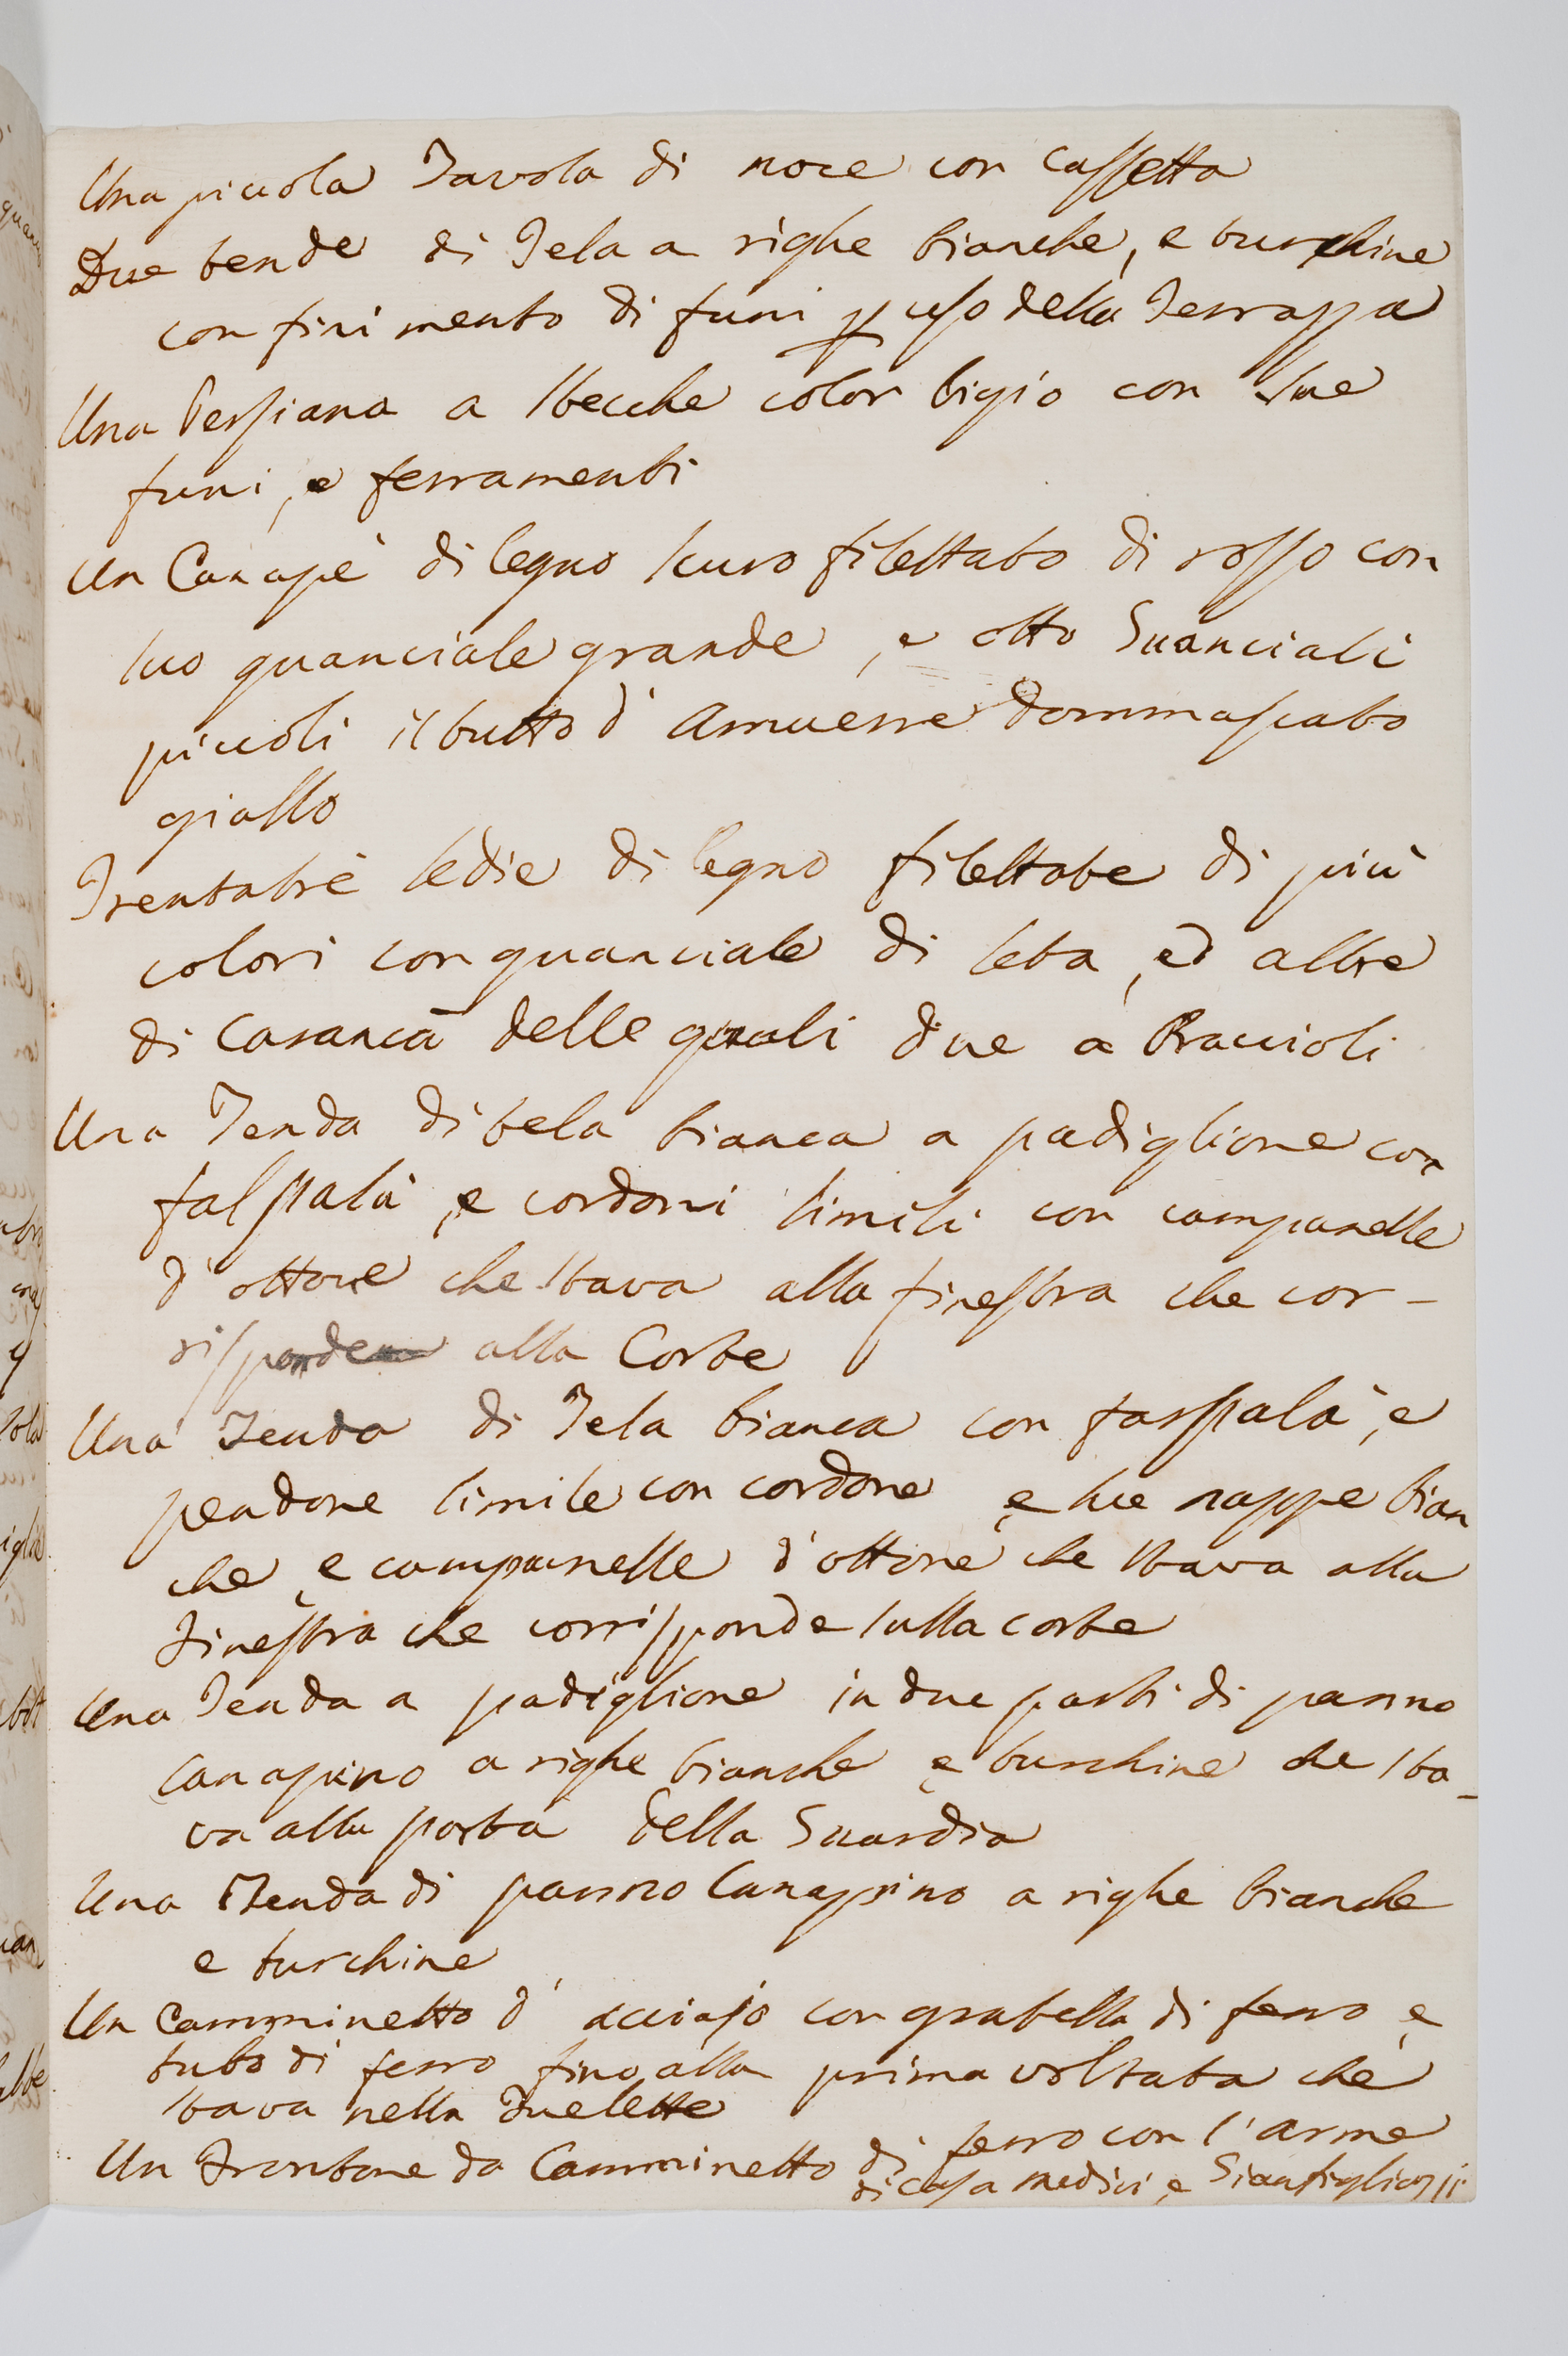 Una piccola Tavola di noce con Cassetta
Due tende di Tela a righe bianche, e turchine
con finimento di funi p uso della Terrazza
Una Persiana a stecche color bigio con sue
funi, e ferramenti
Un Canapè di legno scuro filettato di rosso con
suo guanciale grande, e otto Guanciali
piccoli il tutto d' Amuerre dommascato
giallo
Trentatrè sedie di legno filettate di più
colori con guanciale di seta, ed altre
di Casancà delle quali due a Braccioli
Una Tenda di tela bianca a padiglione con
falpalà, e cordoni simili con campanelle
d' ottone che stava alla finestra che cor-
risponde alla Corte
Una Tenda di Tela bianca con farpalà, e
pendone simile con cordone e sue nappe bian
che, e campanelle d'ottone che stava alla
finestra che corrisponde sulla corte
Una Tenda a padiglione in due parti di panno
Canapino a righe bianche e turchine che sta-
va alla porta della Guardia
Una Tenda di panno Canapino a righe bianche
e turchine
Un Camminetto d' acciajo con gratella di ferro e
tubo di ferro fino alla prima voltata che
stava nella Tuelette
Un Frontone da Camminetto di ferro con l'arme
di casa Medici, e Gianfigliazzi